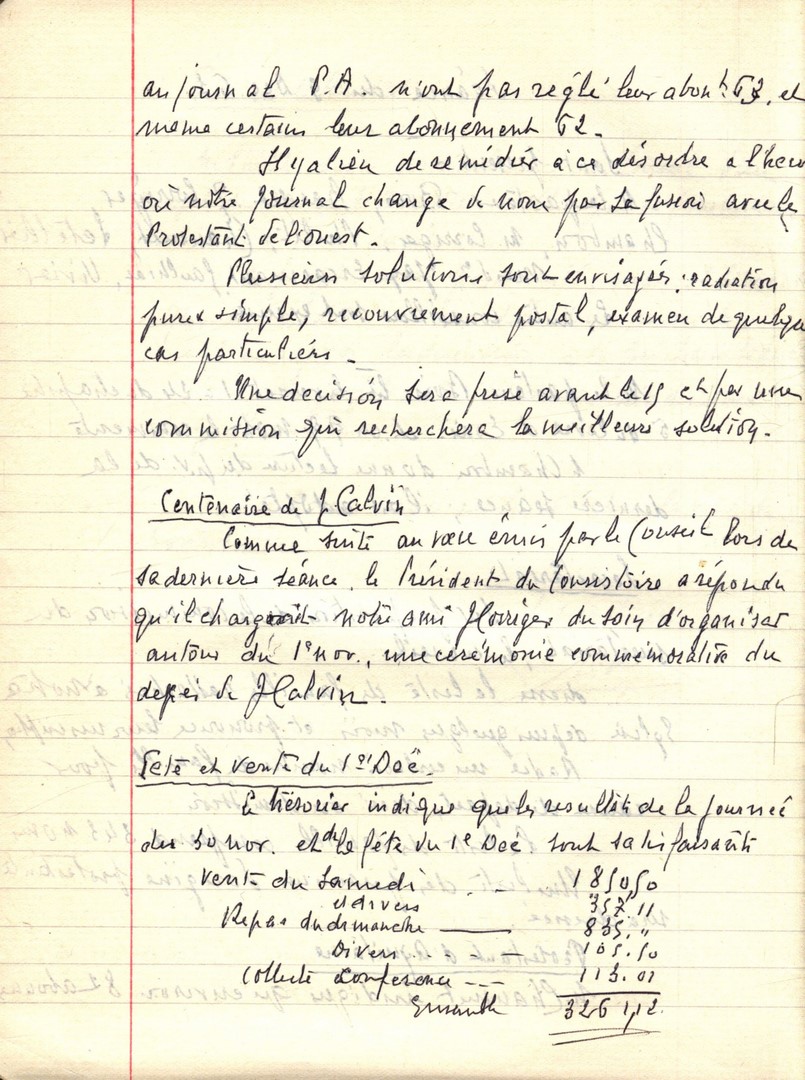 au journal P.A. n'ont pas réglé leur abont 63, et
même certains leur abonnement 62.
Il y a lieu de remédier à ce désordre à l'heu
où notre journal change de nom par sa fusion avec le
Protestant de l'ouest.
Plusieurs solutions sont envisagées : radiation
pure & simple, recouvrement postal, examen de quelque
cas particuliers.
Une décision sera prise avant le 15 et par une
commission qui recherchera la meilleure solution.
Centenaire de J Calvin
Comme suite au voeu émis par le Conseil lors de
sa dernière séance, le Président du Consistoire a répondu
qu'il chargeait notre ami Horriger du soin d'organiser
autour du 1e nov., une cérémonie commémorative du
depei de J Calvin.
Fete et vente du 1er Dec.
Le trésorier indique que les resultats de la journée
du 30 nov. et de la fête du 1e Dec sont satisfaisants
Vente du Samedi 1 850,50
et divers 357.11
Repas du dimanche 835. "
Divers 105.50
Collecte Conference 113.01
Ensemble 3261,12